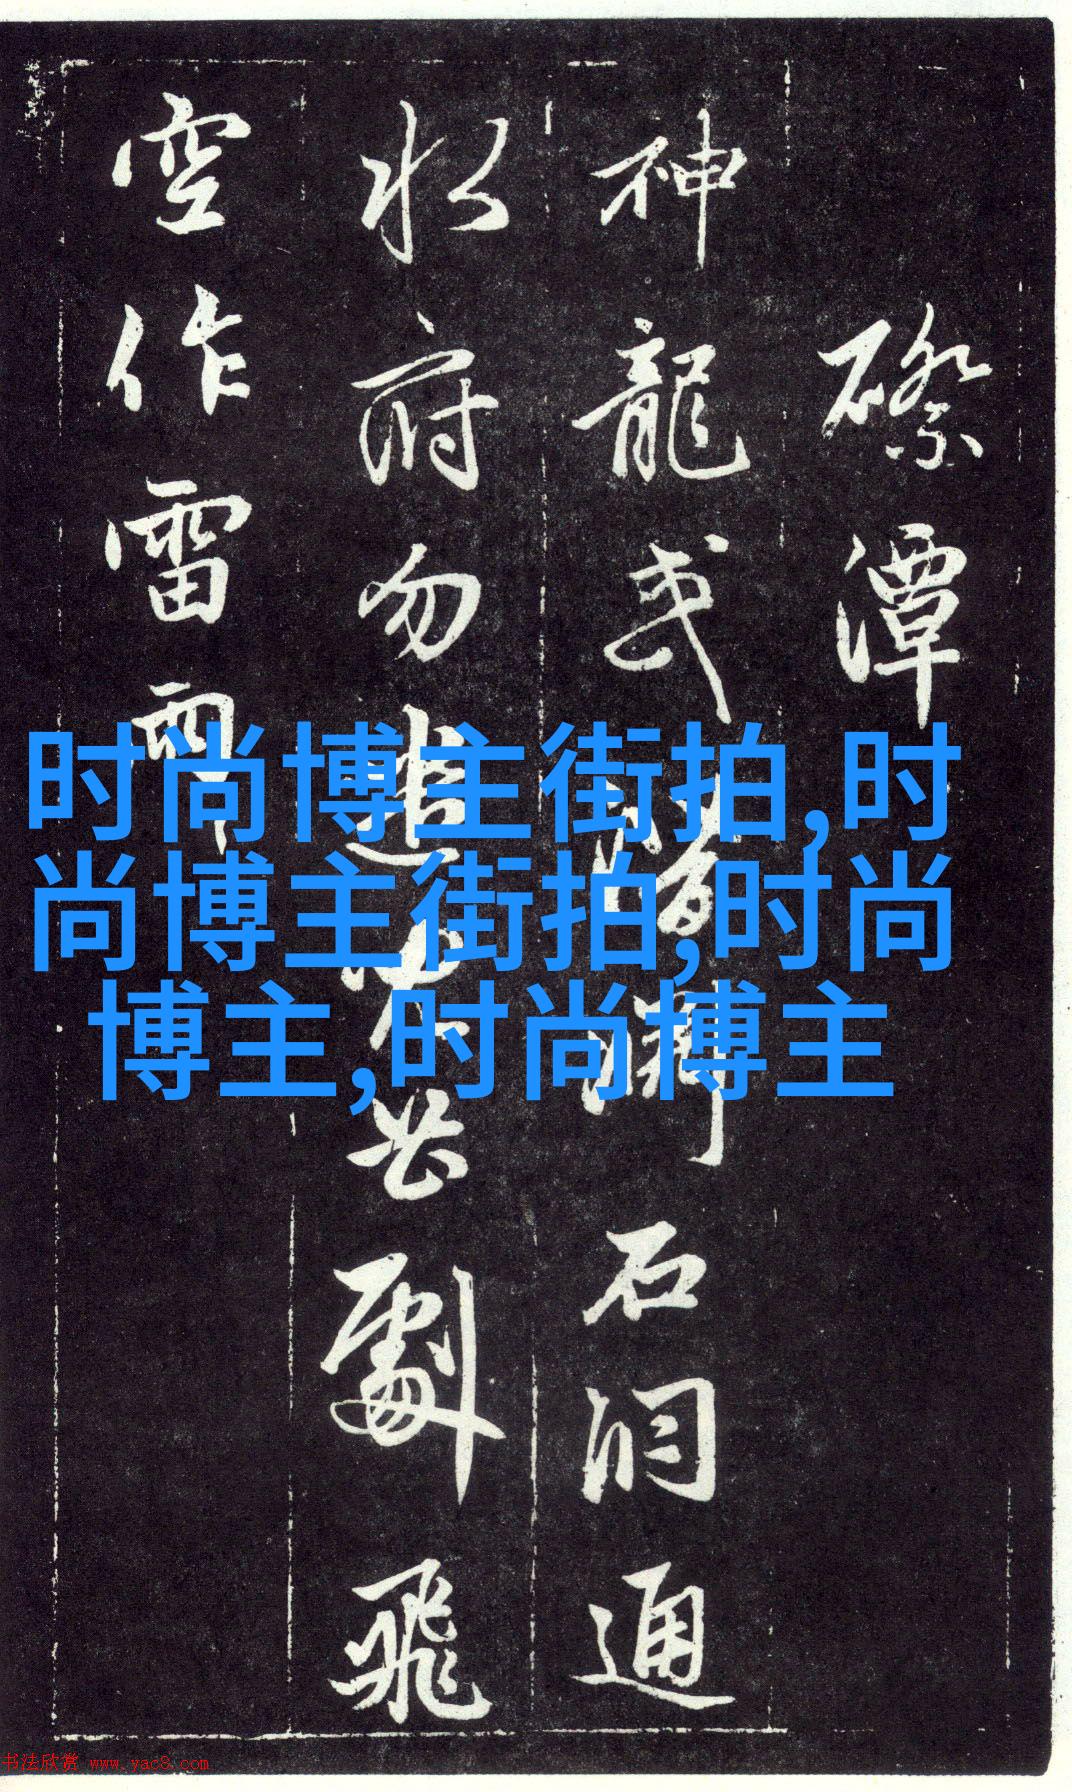 磜潭
神龍或潛躍石洞通
水府勿進不昔劚飛
空作雷雨
时尚博主街拍,时
尚博主街拍,时尚
博主,时尚博主
书法欣赏 www.yac8.com